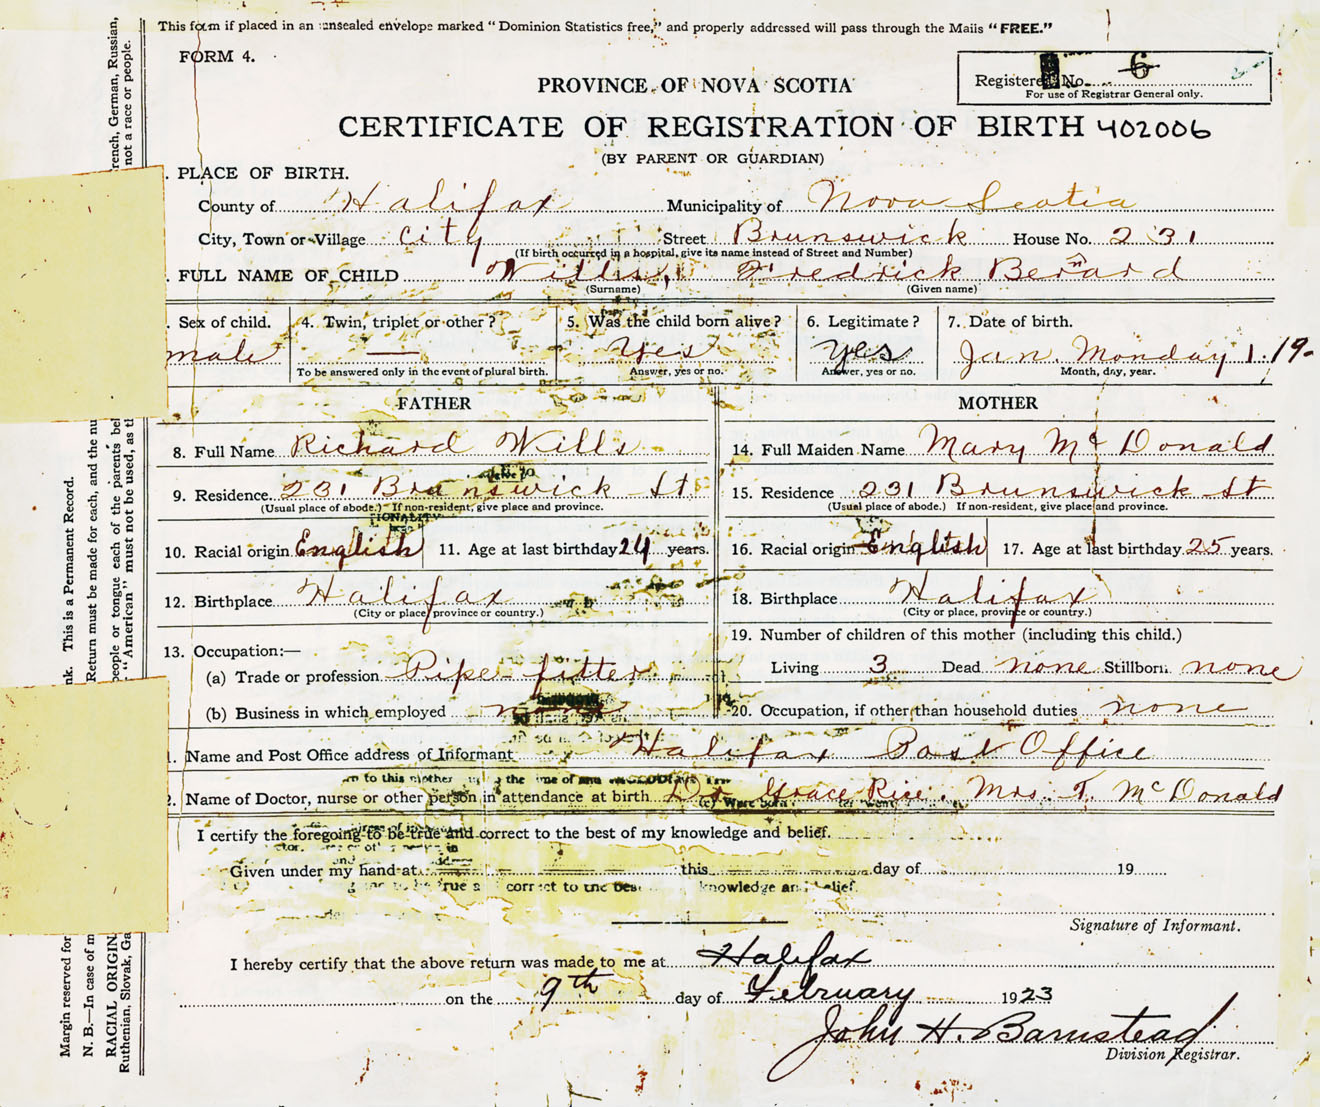 This form if placed in an unsealed envelope marked "Dominion Statistics free," and properly addressed will pass through the Mails "FREE."
FORM 4.
Registered No. 6
For use of Registrar General only.
PROVINCE OF NOVA SCOTIA
CERTIFICATE OF REGISTRATION OF BIRTH 402006
(BY PARENT OR GUARDIAN)
. PLACE OF BIRTH.
County of Halifax Municipality of Nova Scotia
City, Town or Village City Street Brunswick House No. 231
(If birth occurred in a hospital, give its name instead of Street and Number)
. FULL NAME OF CHILD Wills, Fredrick Berard
(Surname) (Given name)
. Sex of child. 4. Twin, triplet or other? 5. Was the child born alive? 6. Legitimate? 7. Date of birth.
male — Yes yes Jan. Monday 1. 19-
To be answered only in the event of plural birth. Answer, yes or no. Answer, yes or no. Month, day, year.
FATHER MOTHER
8. Full Name Richard Wills 14. Full Maiden Name Mary McDonald
9. Residence 231 Brunswick St 15. Residence 231 Brunswick St
(Usual place of abode.) If non-resident, give place and province. (Usual place of abode.) If non-resident, give place and province.
10. Racial origin English 11. Age at last birthday 24 years. 16. Racial origin English 17. Age at last birthday 25 years.
12. Birthplace Halifax 18. Birthplace Halifax
(City or place, province or country.) (City or place, province or country.)
19. Number of children of this mother (including this child.)
13. Occupation:—
Living 3 Dead none Stillborn none
(a) Trade or profession Pipe fitter
(b) Business in which employed none 20. Occupation, if other than household duties none
1. Name and Post Office address of Informant Halifax Post Office
to this mother the
2. Name of Doctor, nurse or other person in attendance at birth Dr Grace Rice. Mrs T. McDonald
(c) Were born
I certify the foregoing to be true and correct to the best of my knowledge and belief.
Given under my hand at this day of 19
true correct to the best knowledge and belief.
Signature of Informant.
I hereby certify that the above return was made to me at Halifax
on the 9th day of February 1923
John H. Barnstead
Division Registrar.
Margin reserved for
nk. This is a Permanent Record.
N. B.—In case of m
Return must be made for each, and the nu
RACIAL ORIGIN
people or tongue each of the parents bel
rench, German, Russian,
Ruthenian, Slovak, Ga
"American" must not be used, as t
not a race or people.